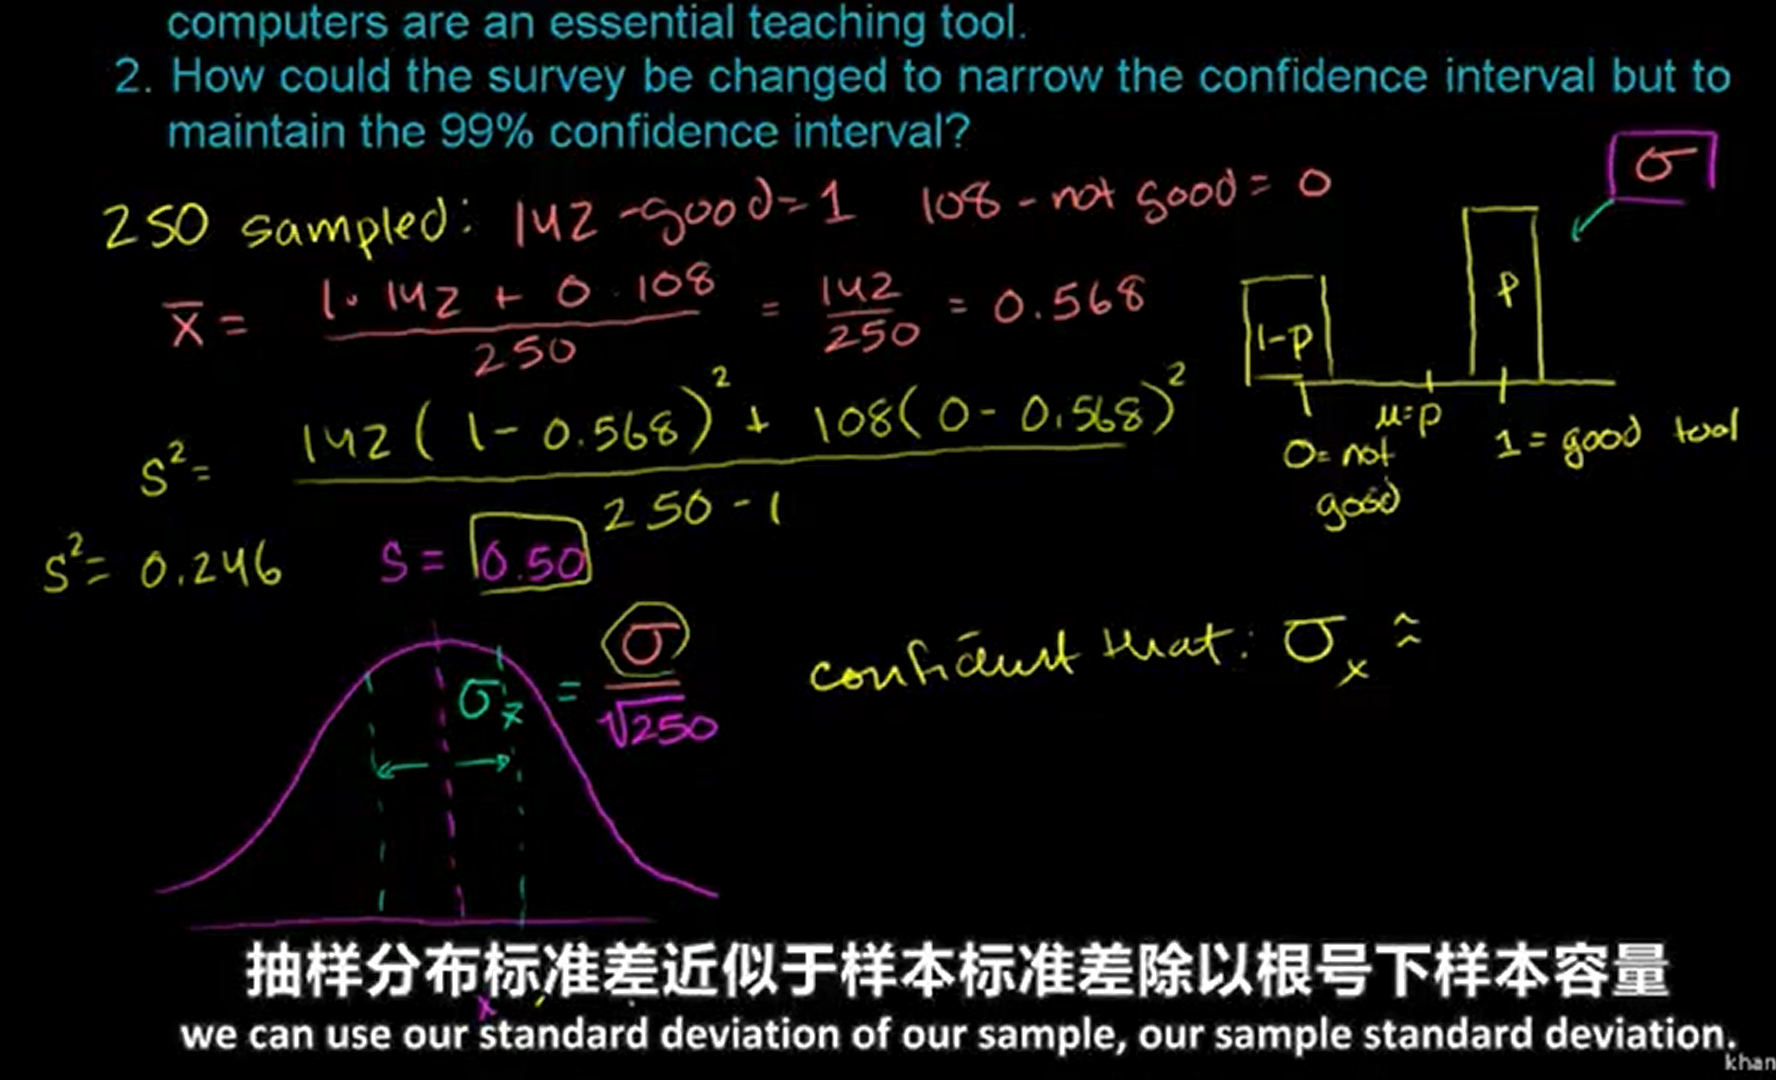 computers are an essential teaching tool.
2. How could the survey be changed to narrow the confidence interval but to
maintain the 99% confidence interval?
σ
250 sampled: 142 - good = 1 108 - not good = 0
x̄ = (1·142 + 0·108)/250 = 142/250 = 0.568
1-p p
μ=p
0= not good
1 = good tool
S² = (142(1-0.568)² + 108(0-0.568)²)/(250-1)
S² = 0.246 S = 0.50
σx̄ = σ/√250
confident that: σx ≈
抽样分布标准差近似于样本标准差除以根号下样本容量
we can use our standard deviation of our sample, our sample standard deviation.
khan